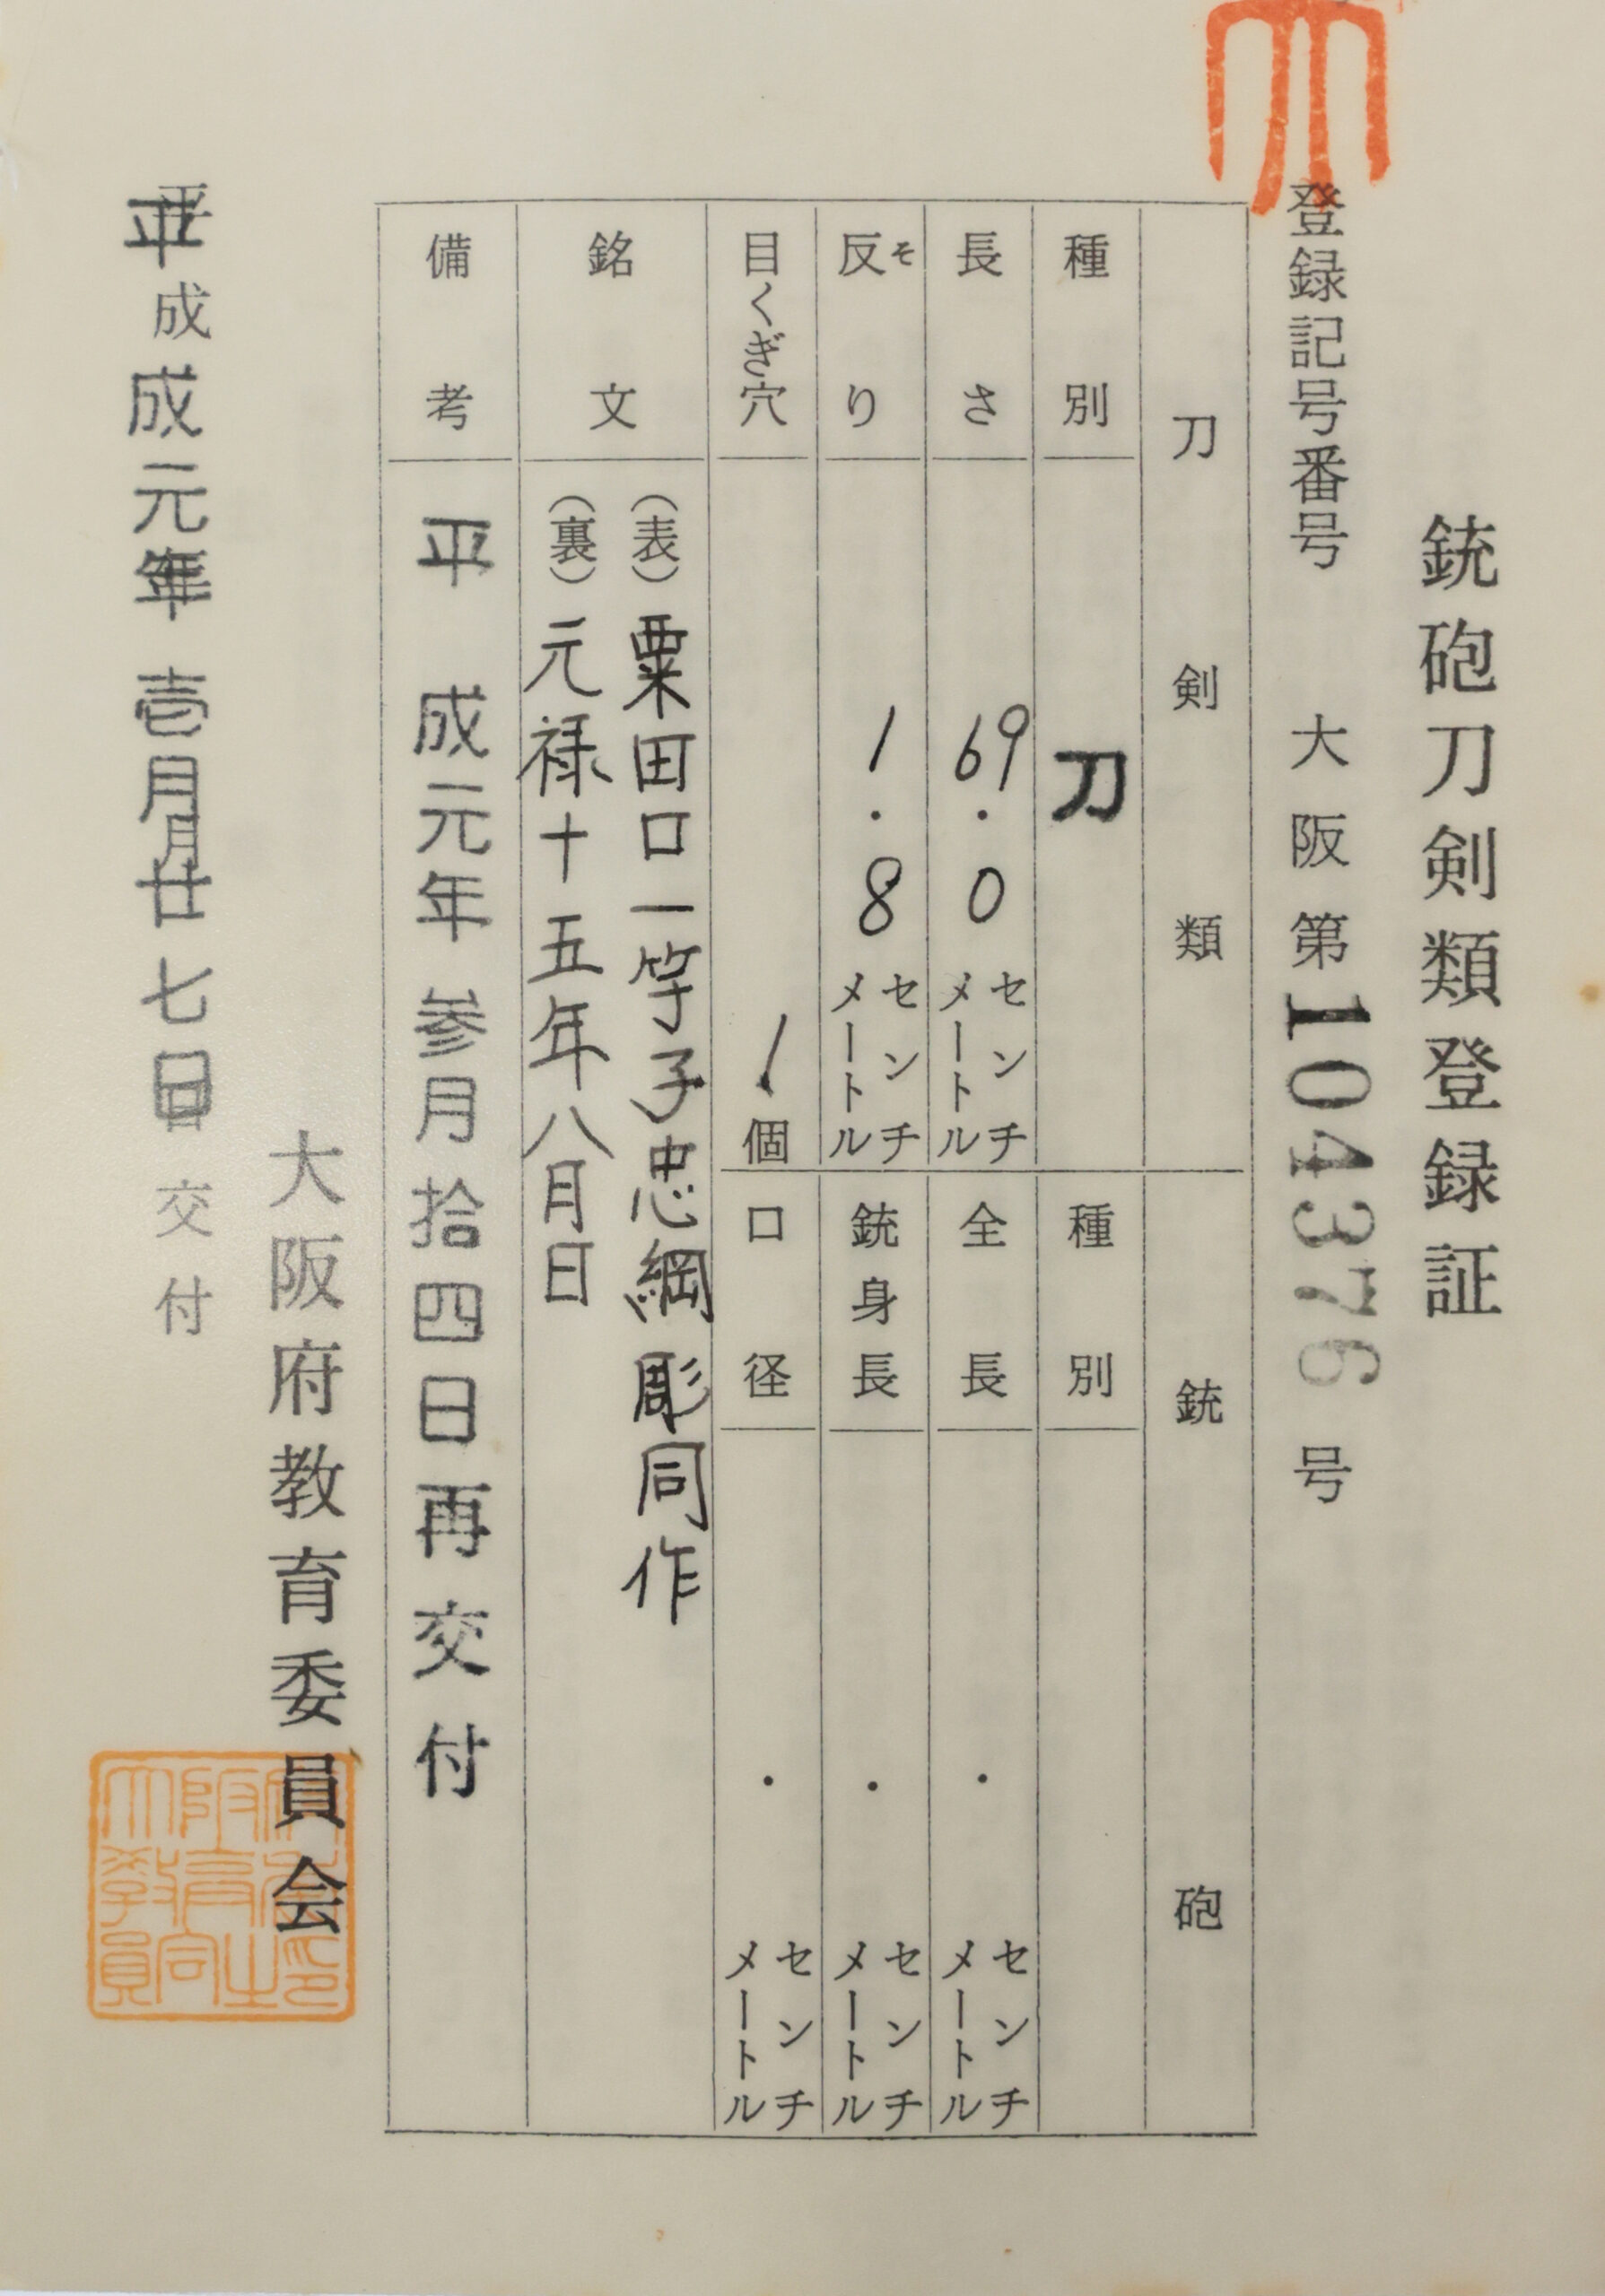 銃砲刀剣類登録証
登録記号番号 大阪第104376号
刀剣類
銃砲
種別 刀
種別
長さ 69.0センチメートル
全長 ・センチメートル
反り 1.8センチメートル
そ
銃身長 ・センチメートル
目くぎ穴 1個
口径 ・センチメートル
銘文
(表)粟田口一竿子忠綱彫同作
(裏)元禄十五年八月日
備考 平成元年参月拾四日再交付
大阪府教育委員会
平成元年壱月廿七日交付